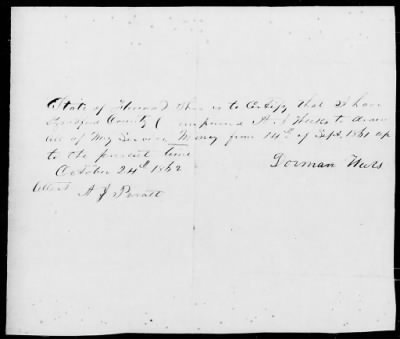 State of Florida This is to Certify that I have
Bradford County ( impowered A. J. Weeks to draw
all of My Service Money from 14th of Sept. 1861 up
to the present time
October 24th 1862
Attest A J
Dorman Weeks